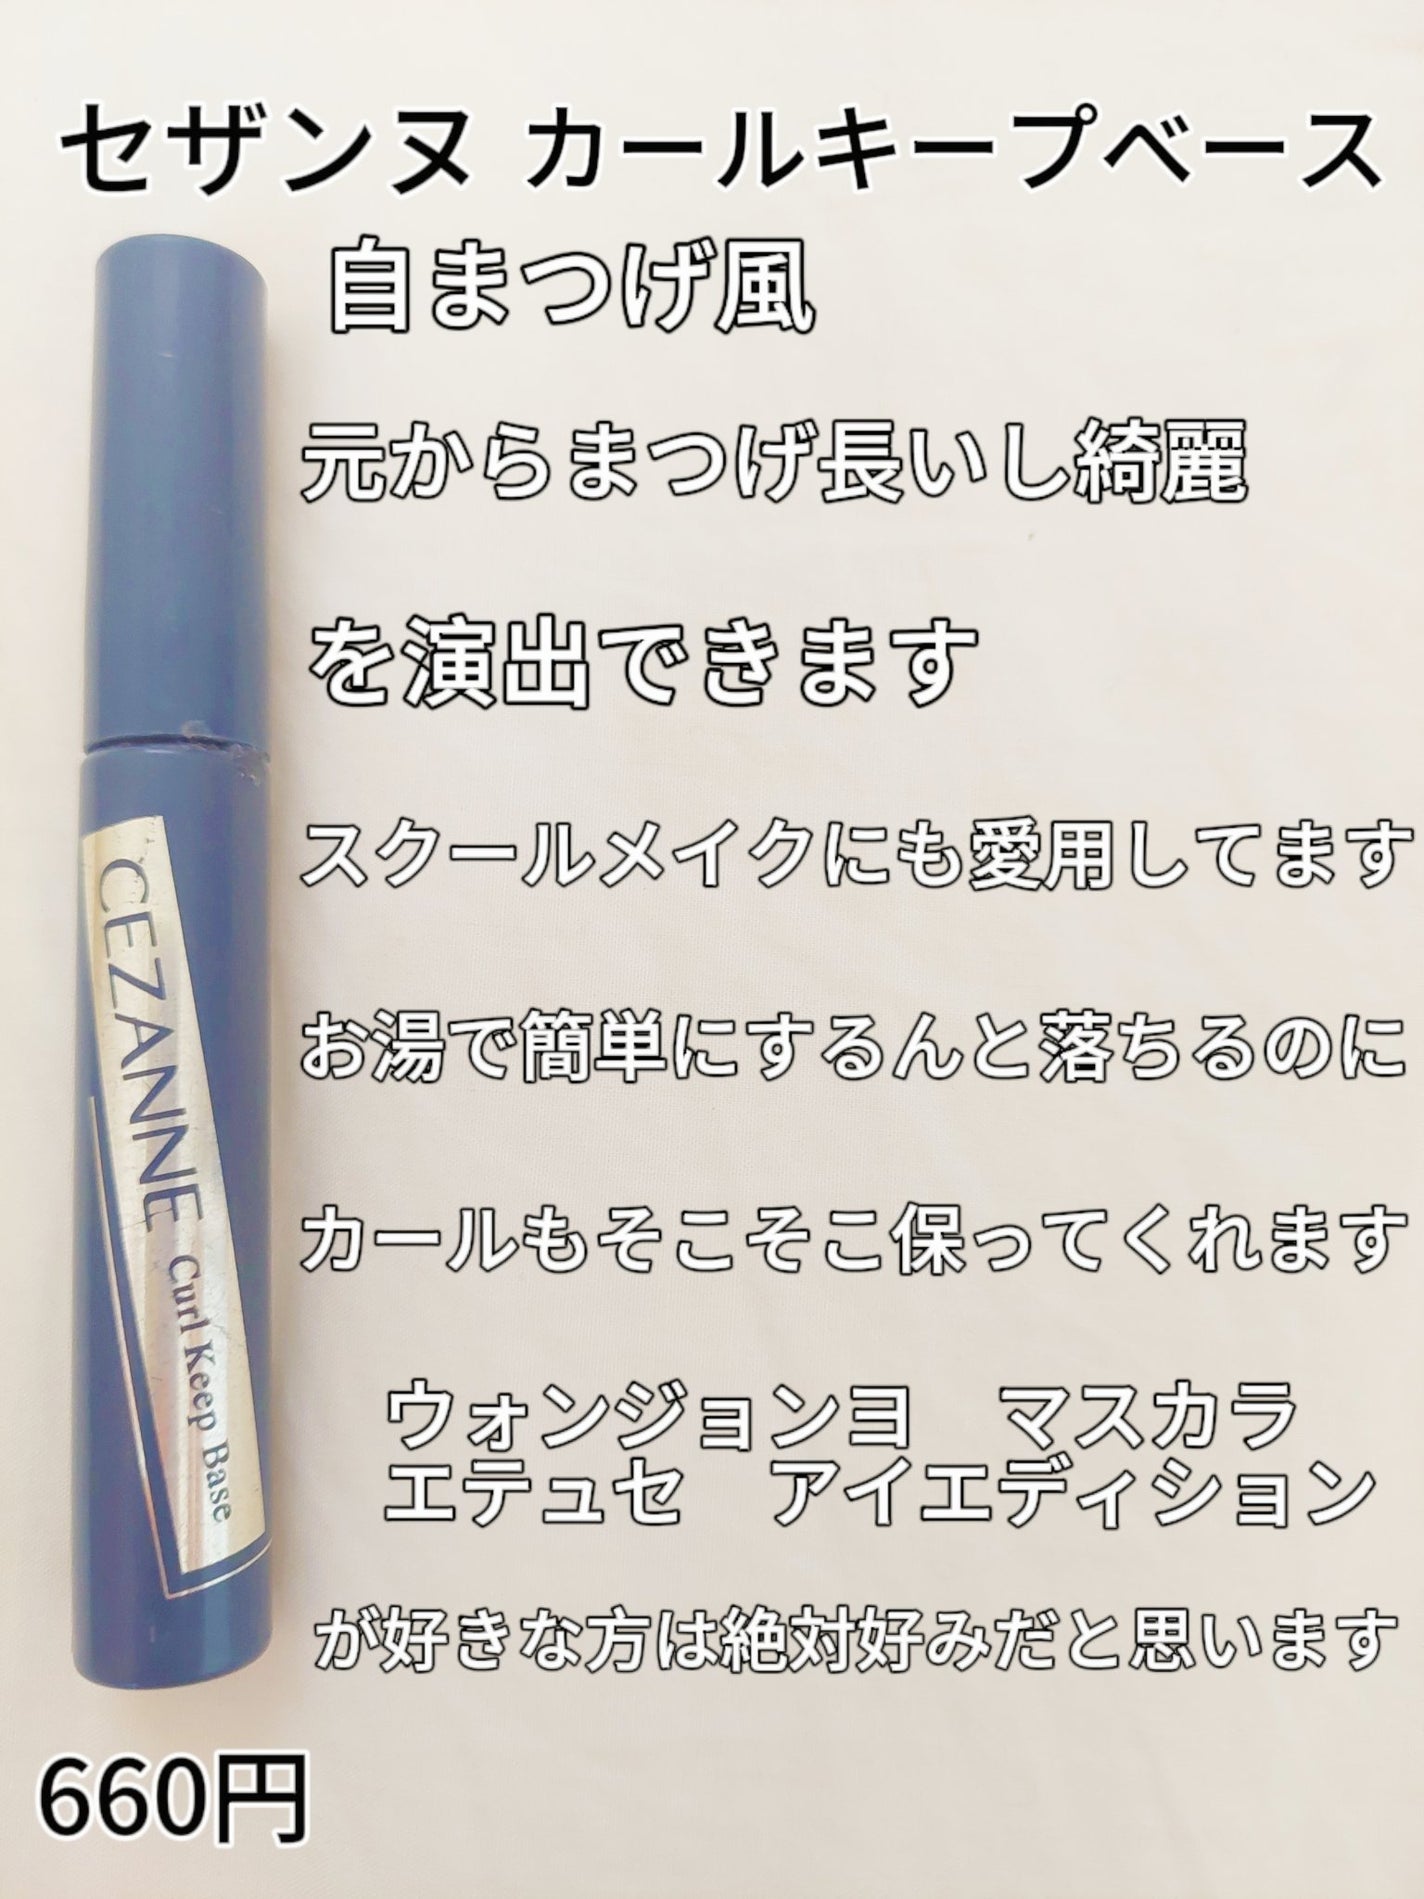 セザンヌ カールキープベース
自まつげ風
元からまつげ長いし綺麗
を演出できます
スクールメイクにも愛用してます
お湯で簡単にするんと落ちるのに
カールもそこそこ保ってくれます
ウォンジョンヨ　マスカラ
エテュセ　アイエディション
が好きな方は絶対好みだと思います
660円
CEZANNE Curl Keep Base